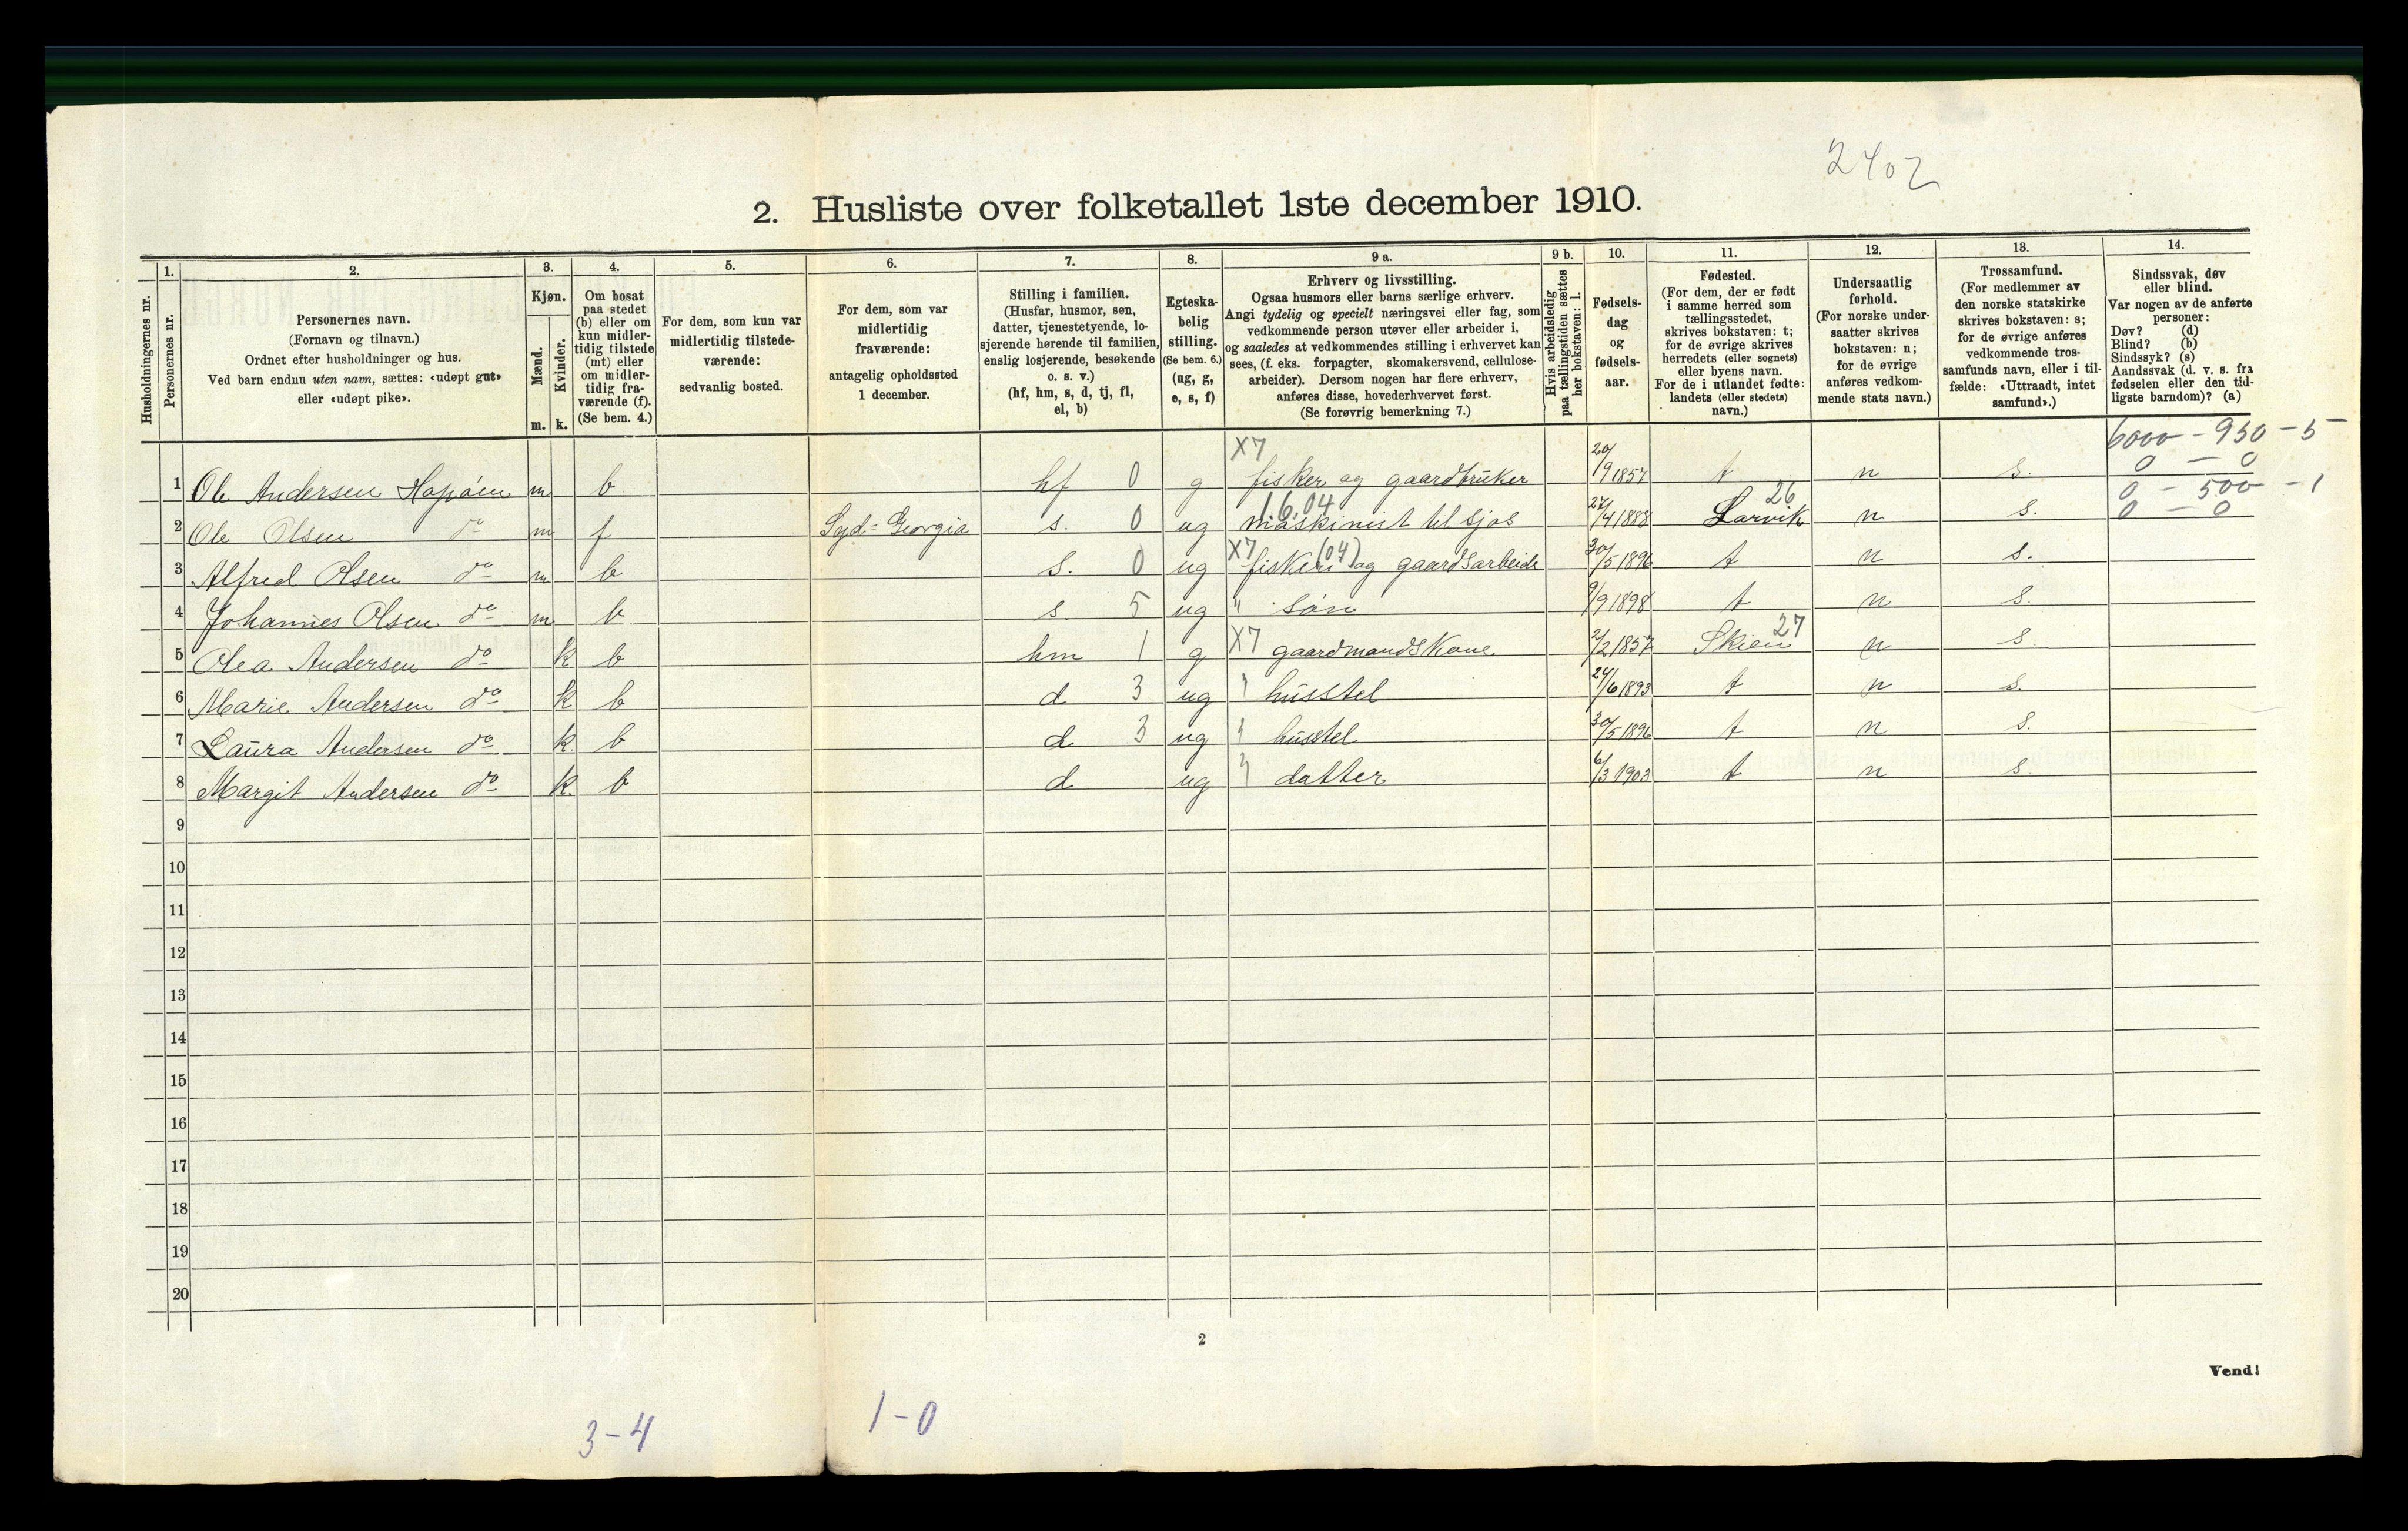 2402
2. Husliste over folketallet 1ste december 1910.
Husholdningernes nr.
1. Personernes nr.
2. Personernes navn. (Fornavn og tilnavn.) Ordnet efter husholdninger og hus. Ved barn endnu uten navn, sættes: «udøpt gut» eller «udøpt pike».
3. Kjøn. Mænd. m. Kvinder. k.
4. Om bosat paa stedet (b) eller om kun midlertidig tilstede (mt) eller om midlertidig fraværende (f). (Se bem. 4.)
5. For dem, som kun var midlertidig tilstedeværende: sedvanlig bosted.
6. For dem, som var midlertidig fraværende: antagelig opholdssted 1 december.
7. Stilling i familien. (Husfar, husmor, søn, datter, tjenestetyende, losjerende hørende til familien, enslig losjerende, besøkende o. s. v.) (hf, hm, s, d, tj, fl, el, b)
8. Egteskabelig stilling. (Se bem. 6.) (ug, g, e, s, f)
9 a. Erhverv og livsstilling. Ogsaa husmors eller barns særlige erhverv. Angi tydelig og specielt næringsvei eller fag, som vedkommende person utøver eller arbeider i, og saaledes at vedkommendes stilling i erhvervet kan sees, (f. eks. forpagter, skomakersvend, cellulosearbeider). Dersom nogen har flere erhverv, anføres disse, hovederhvervet først. (Se forøvrig bemerkning 7.)
9 b. Hvis arbeidsledig paa tællingstiden sættes her bokstaven: l.
10. Fødselsdag og fødselsaar.
11. Fødested. (For dem, der er født i samme herred som tællingsstedet, skrives bokstaven: t; for de øvrige skrives herredets (eller sognets) eller byens navn. For de i utlandet fødte: landets (eller stedets) navn.)
12. Undersaatlig forhold. (For norske undersaatter skrives bokstaven: n; for de øvrige anføres vedkommende stats navn.)
13. Trossamfund. (For medlemmer av den norske statskirke skrives bokstaven: s; for de øvrige anføres vedkommende trossamfunds navn, eller i tilfælde: «Uttraadt, intet samfund».)
14. Sindssvak, døv eller blind. Var nogen av de anførte personer: Døv? (d) Blind? (b) Sindssyk? (s) Aandssvak (d. v. s. fra fødselen eller den tidligste barndom)? (a)
6000 - 950 - 5
0 - 0
0 - 500 - 1
0 - 0
1 Ole Andersen m b hf 0 g X7 fisker og gaardbruker 20/9 1857 t n s.
2 Ole Olsen do m f Syd=Georgia s. 0 ug 16.04 maskinist til sjøs 27/4 1888 Larvik 26 n s.
3 Alfred Olsen do m b s. 0 ug X7 (04) og gaardsarbeide 30/5 1896 t n s.
4 Johannes Olsen do m b s 5 ug " søn 9/9 1898 t n s.
5 Olea Andersen do k b hm 1 g X7 gaardmandskone 2/2 1857 Skien 27 n s
6 Marie Andersen do k b d 3 ug " husstel 24/6 1893 t n s.
7 Laura Andersen do k. b d 3 ug " husstel 30/5 1896 t n s.
8 Margit Andersen do k. b d ug " datter 6/3 1903 t n s.
9
10
11
12
13
14
15
16
17
18
19
20
2
Vend!
3-4
1-0